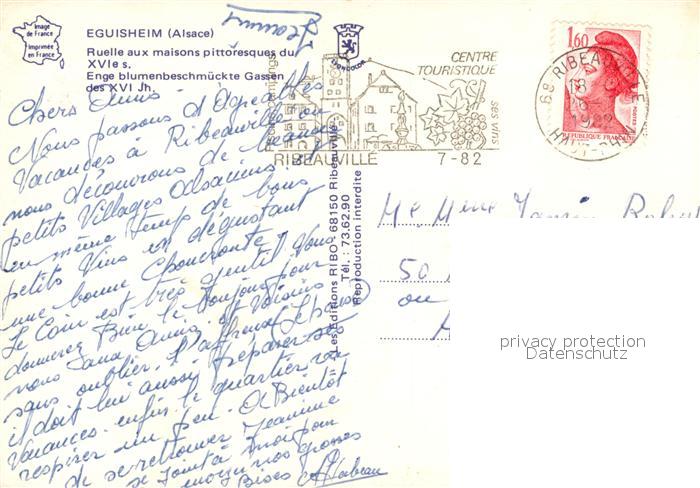 Image
de France
Imprimée
en France
EGUISHEIM (Alsace)
Ruelle aux maisons pittoresques du
XVIe s.
Enge blumenbeschmückte Gassen
des XVI Jh.
LYONCOLOR
Jeannine
CENTRE
TOURISTIQUE
SES VINS
RIBEAUVILLE 7-82
68 RIBEAUVILLE
18
1982
HAUT-RHIN
1,60
POSTES
REPUBLIQUE FRANÇAISE
Chers Amis
Nous passons d'Agréables
Vacances a Ribeauville ou
nous découvrons de
petits Villages Alsaciens
en même temps de bons
petits Vins en dégustant
une bonne Choucroute
Le Coin est très gentil Vous
donnerez Bien le Bonjour pour
nous aux Amis et Voisins
sans oublier l'affreux
il doit lui aussi préparer se
Vacances enfin le quartier va
respirer un peu. A Bientôt
de se retrouver Jeannine
se joint à moi pour
nos grosses
Bises
Les Editions RIBO - 68150 Ribeauvillé
Tél. : 73.62.90
Reproduction interdite
Me Mme
50
ou
privacy protection
Datenschutz